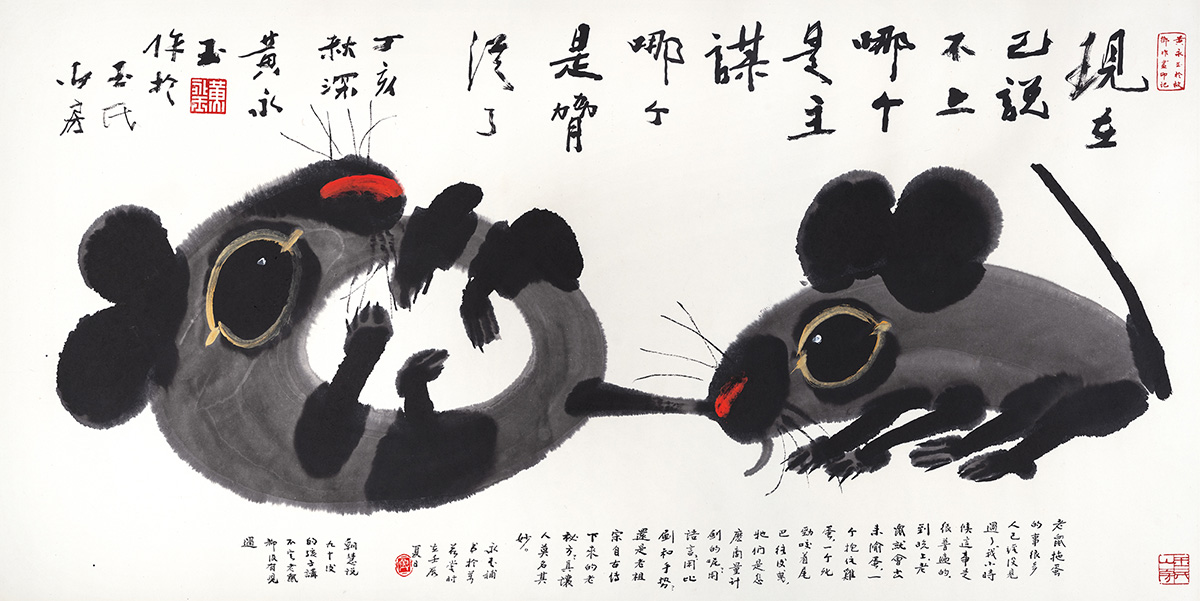 現在
已説
不上
哪个
是主
謀
哪个
是脅
從了
丁亥
秋深
黃永
玉
作於
玉氏
山房
黃永玉
黃永玉於故
鄉作畫印記
老鼠拖蛋
的事很多
過了我小時
候這事是
很普遍的
到晚上老
鼠就會出
来偷蛋一
个抱住雞
蛋一个死
勁咬着尾
巴往後曳
牠們是怎
麽商量計
劃的呢?用
語言?用比
劃和手勢?
還是老祖
宗自古傳
下来的老
秘方?真讓
人莫名其
妙。
永玉補
書於萬
荷堂时
在壬辰
夏日
九十後
的孩子講
不定老鼠
都没有見
過